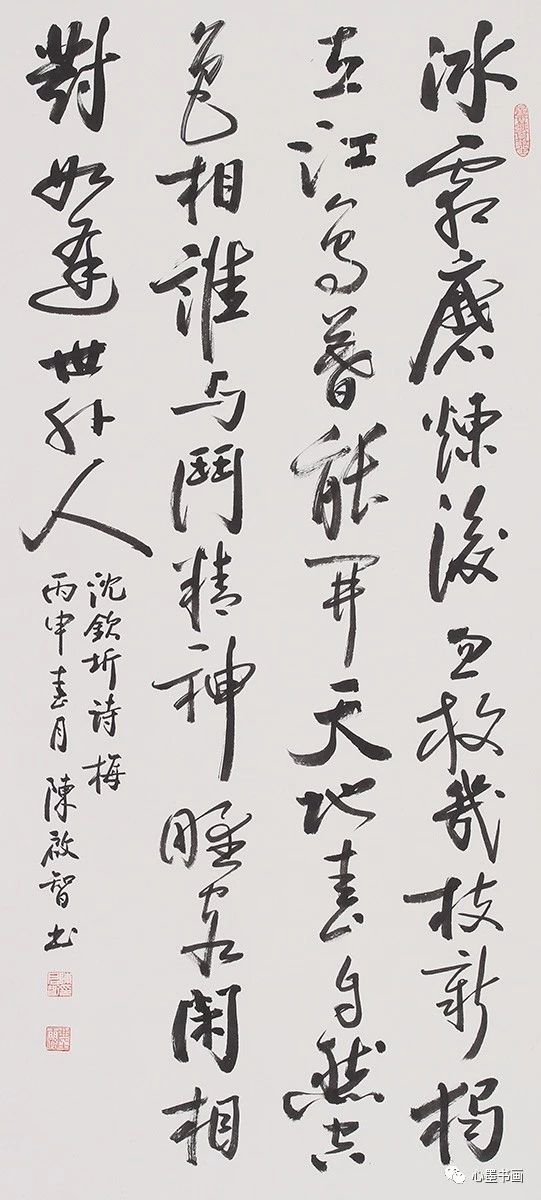 冰霜磨煉後忽放幾枝新獨
立江暮能開天地春自然空
色相誰与鬥精神客閑相
對如逢世外人
沈欽圻詩梅
丙申春月 陳啟智書
心墨书画